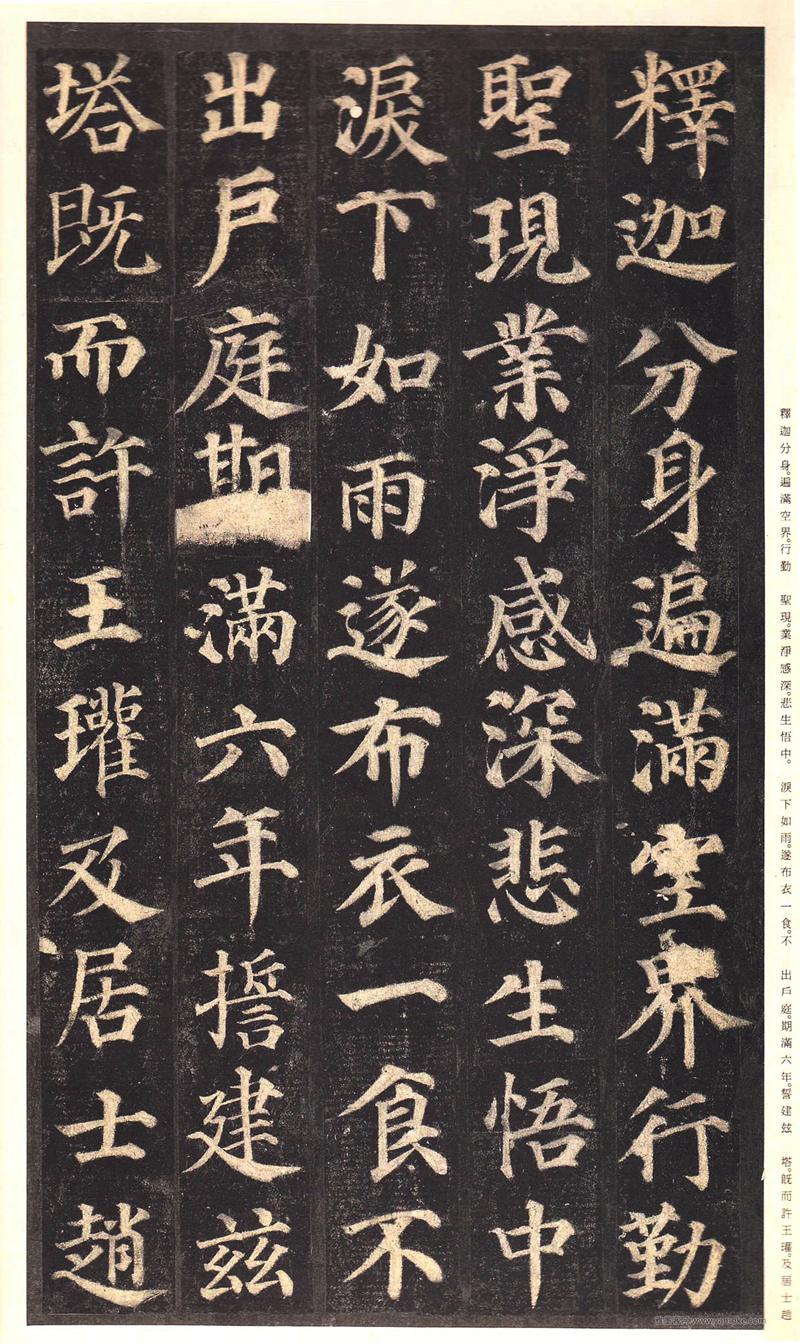 釋迦分身遍滿空界行勤
聖現業淨感深悲生悟中
淚下如雨遂布衣一食不
出戶庭期滿六年誓建茲
塔既而許王瓘及居士趙
釋迦分身。遍滿空界。行勤　聖現。業淨感深。悲生悟中。　淚下如雨。遂布衣一食。不　出戶庭。期滿六年。誓建玆　塔。旣而許王瓘。及居士趙